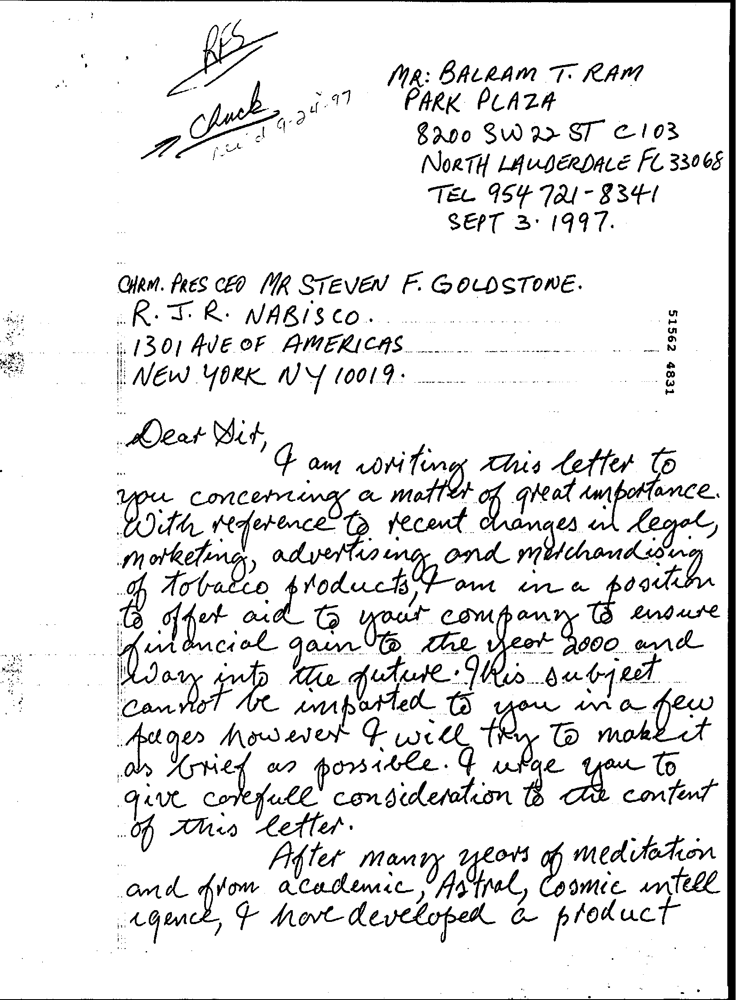 RFS
Chuck
rec'd 9-24-97
MR: BALRAM T. RAM
PARK PLAZA
8200 SW 22 ST C103
NORTH LAUDERDALE FL 33068
TEL 954 721-8341
SEPT 3. 1997.
CHRM. PRES CEO MR STEVEN F. GOLDSTONE.
R. J. R. NABISCO.
1301 AVE OF AMERICAS
NEW YORK NY 10019.
51562 4831
Dear Sir,
I am writing this letter to
you concerning a matter of great importance.
With reference to recent changes in legal,
marketing, advertising and merchandising
of tobacco products, I am in a position
to offer aid to your company to ensure
financial gain to the year 2000 and
way into the future. This subject
cannot be imparted to you in a few
pages however I will try to make it
as brief as possible. I urge you to
give carefull consideration to the content
of this letter.
After many years of meditation
and from academic, Astral, Cosmic intell
igence, I have developed a product